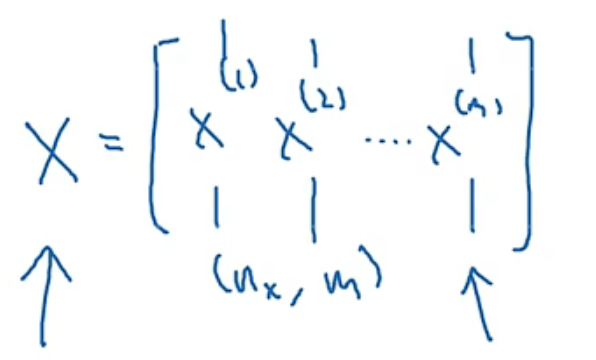 X = [ x^(1) x^(2) .... x^(m) ]
(n_x, m)